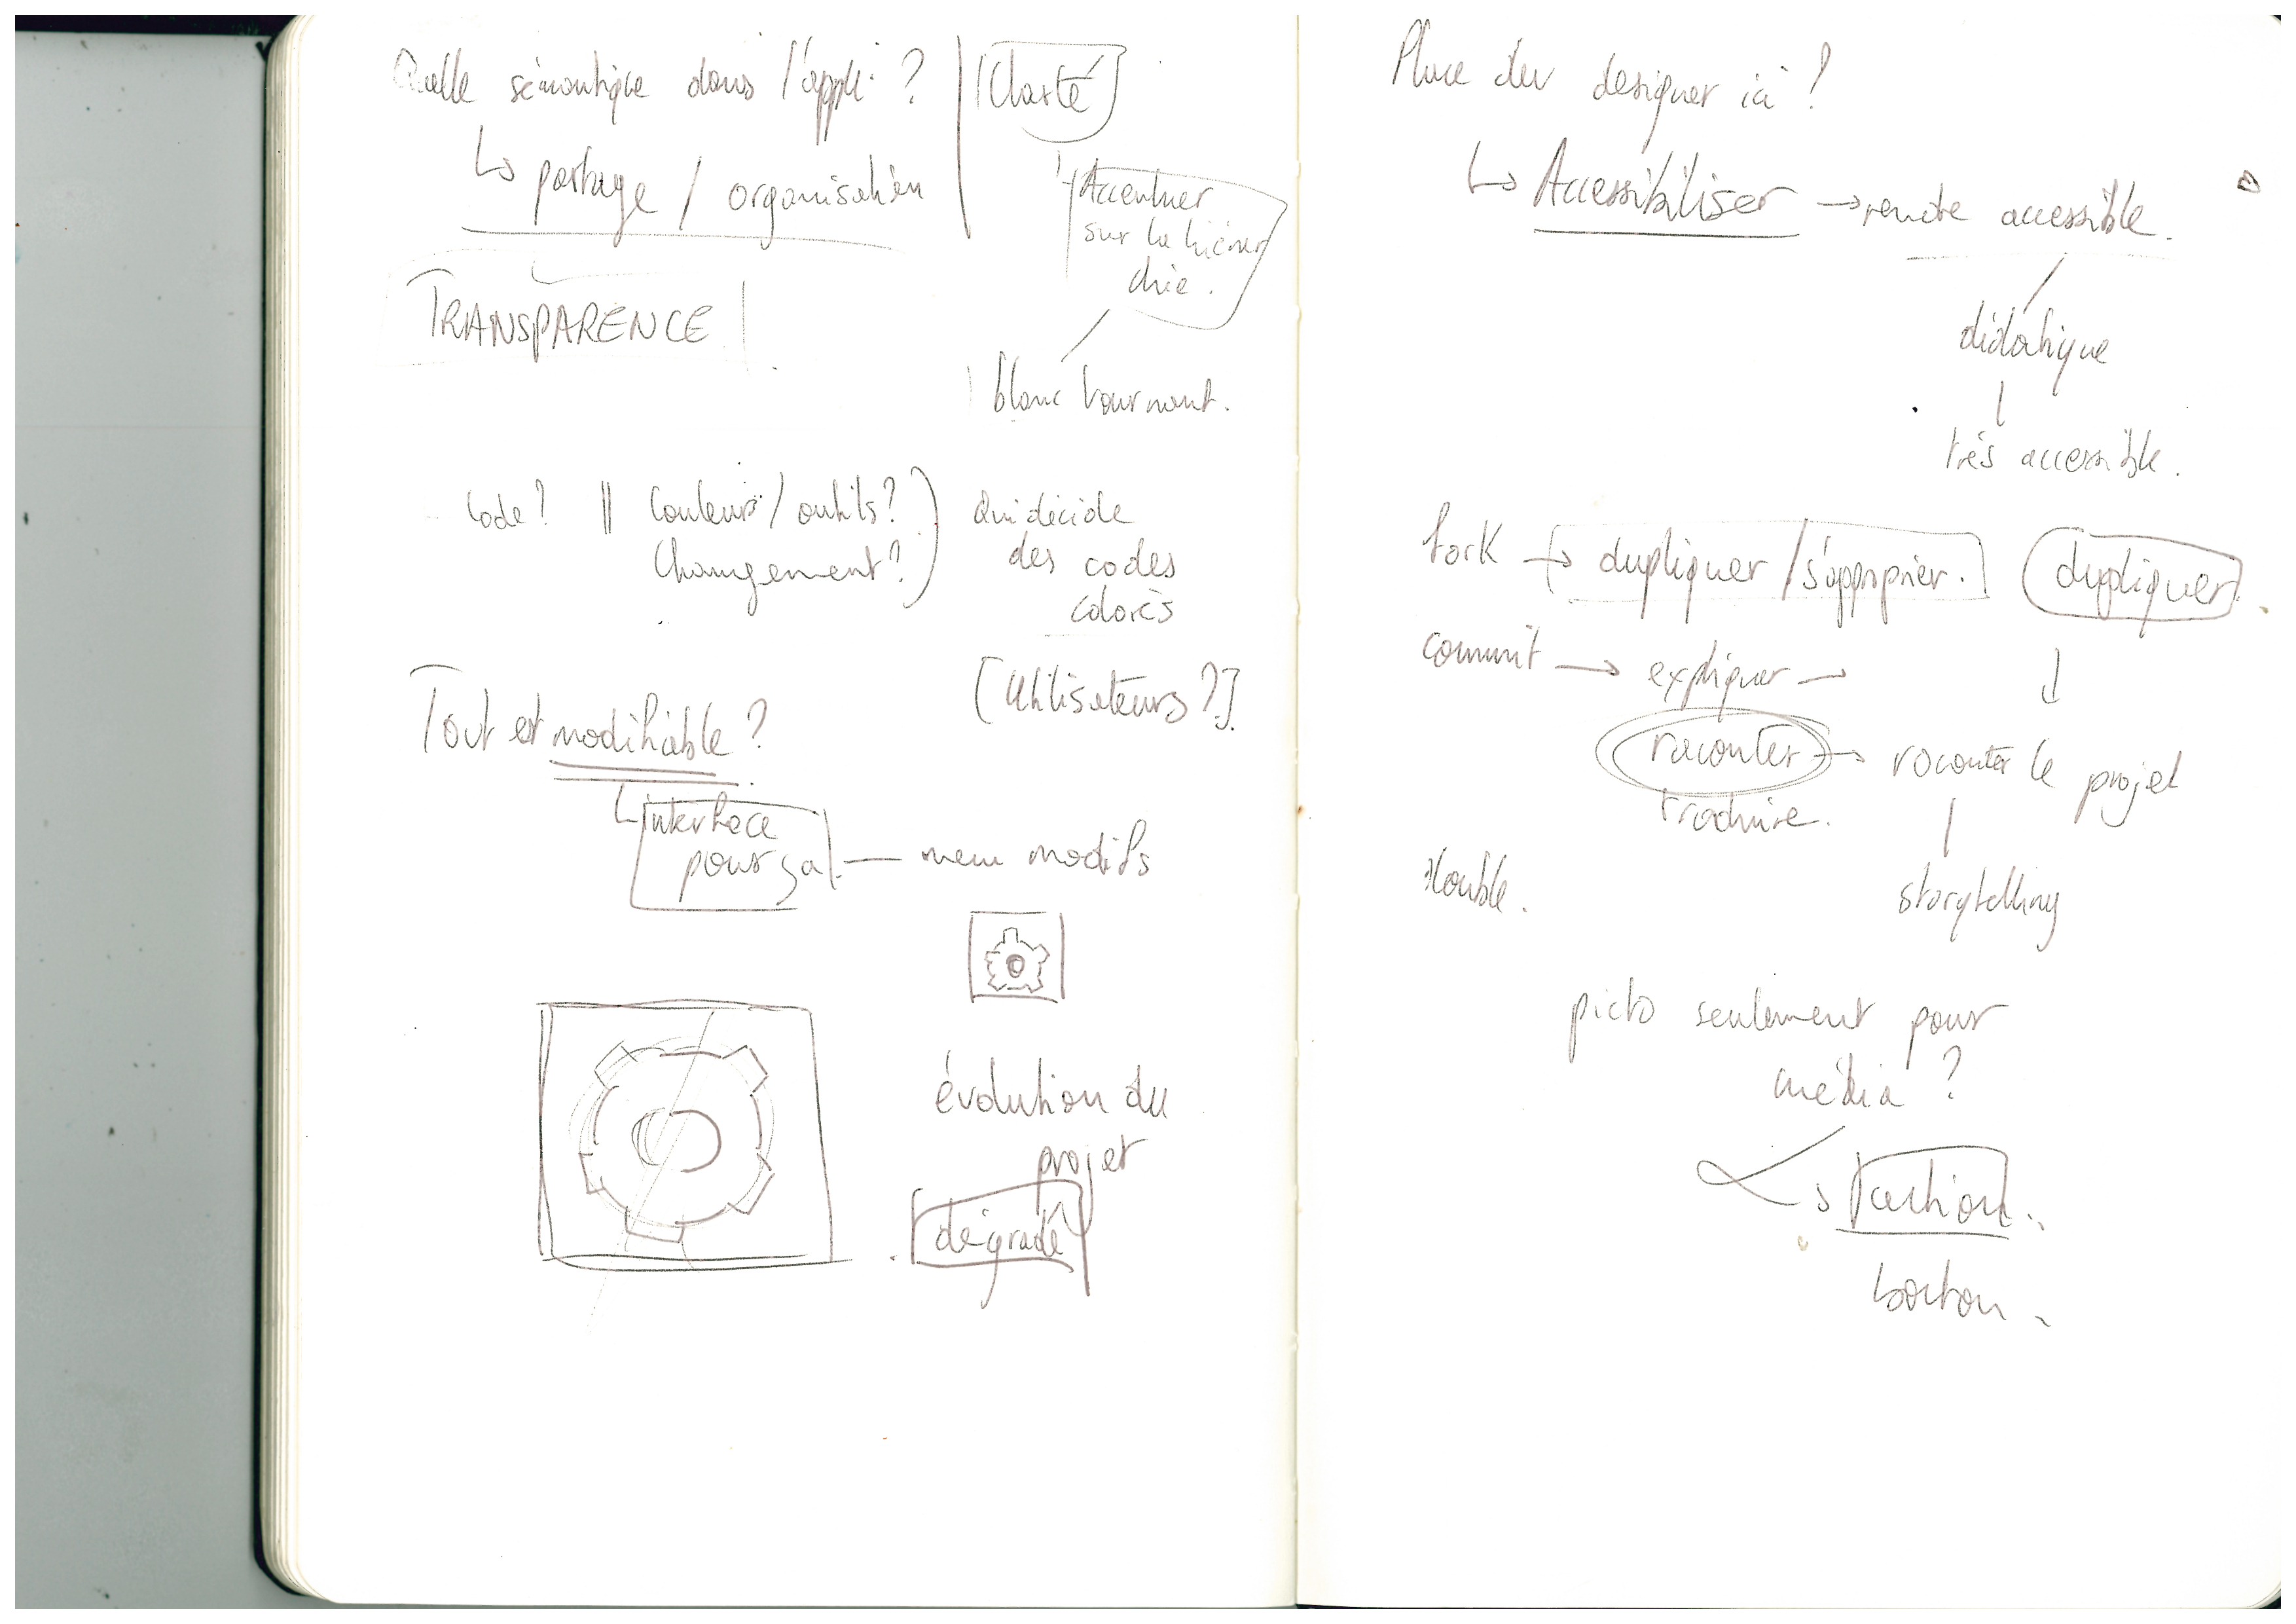 Quelle sémantique dans l'appli ?
↳ partage / organisation
TRANSPARENCE
Clarté
Accentuer
sur la hiérar
chie.
blanc tournant.
Code ? || Couleurs / outils ?
Changement ?
Qui décide
des codes
colorés
[Utilisateurs ?].
Tout est modifiable ?
↳ interface
pour ça — menu modifs
évolution du
projet
dégradé
Place du designer ici ?
↳ Accessibiliser → rendre accessible.
didatique
très accessible.
fork → dupliquer / s'approprier.
dupliquer
commit → expliquer →
raconter → raconter le projet
traduire.
double.
storytelling
picto seulement pour
média ?
↳ action
bouton